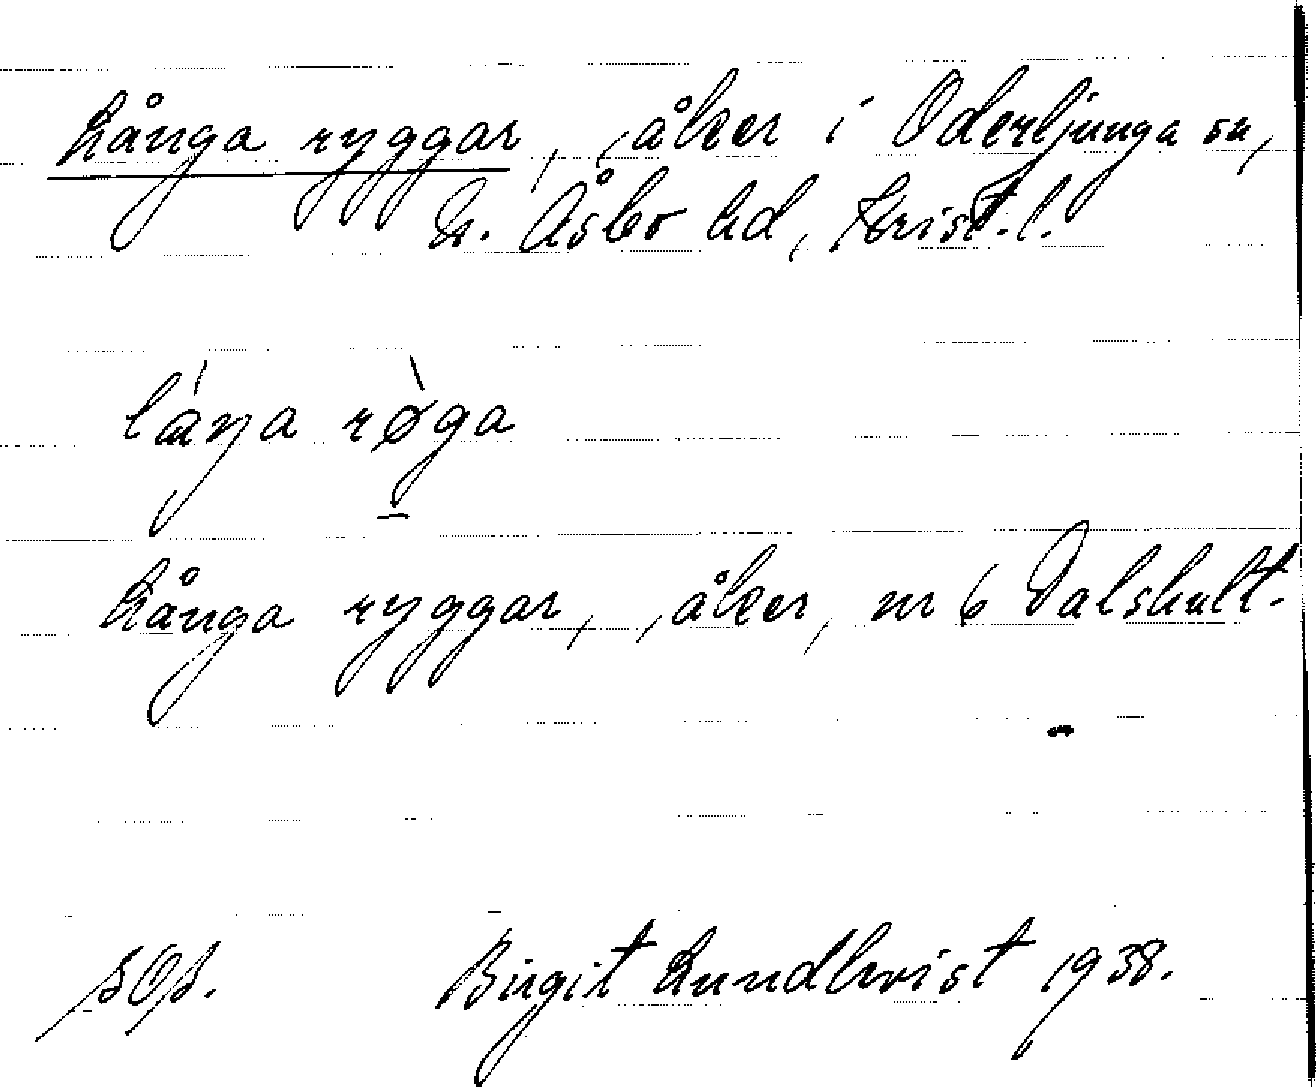 Långa ryggar, åker i Oderljunga sn,
N. Åsbo hd, Krist. l.
láŋa rø̀ga
Långa ryggar, åker, nr 6 Dalshult.
Birgit Lundkvist 1938.